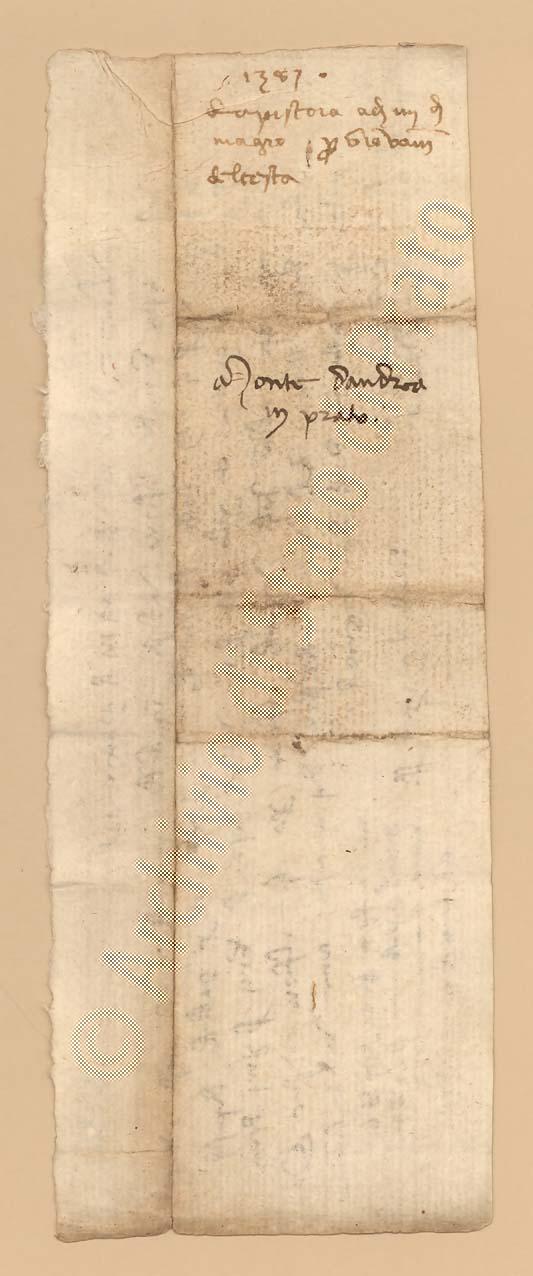 1387
da pistoia adj iiij dj
magio p giovanj
del testa
a Monte dandrea
in prato.
© Archivio di Stato di Prato